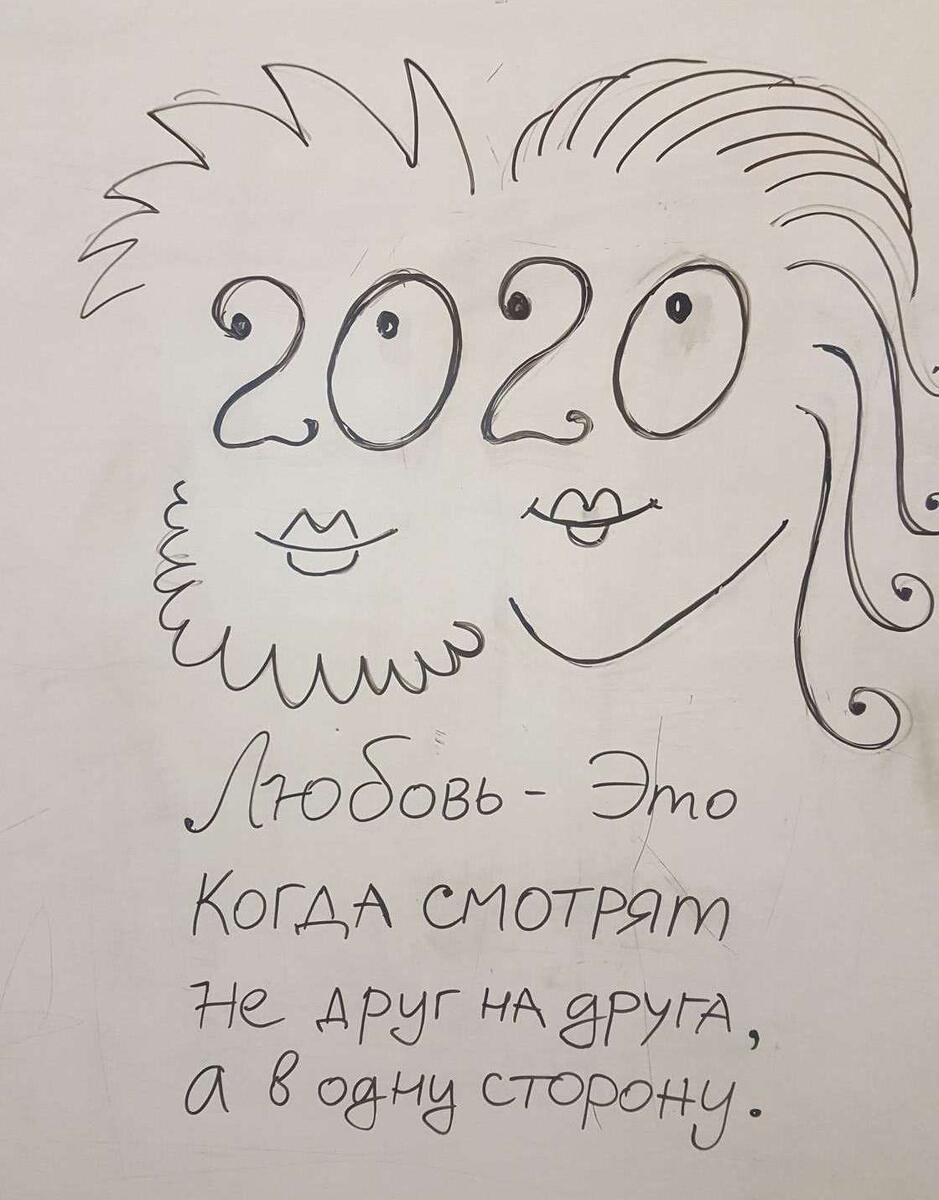 2020
Любовь - Это
Когда смотрят
Не друг на друга,
а в одну сторону.